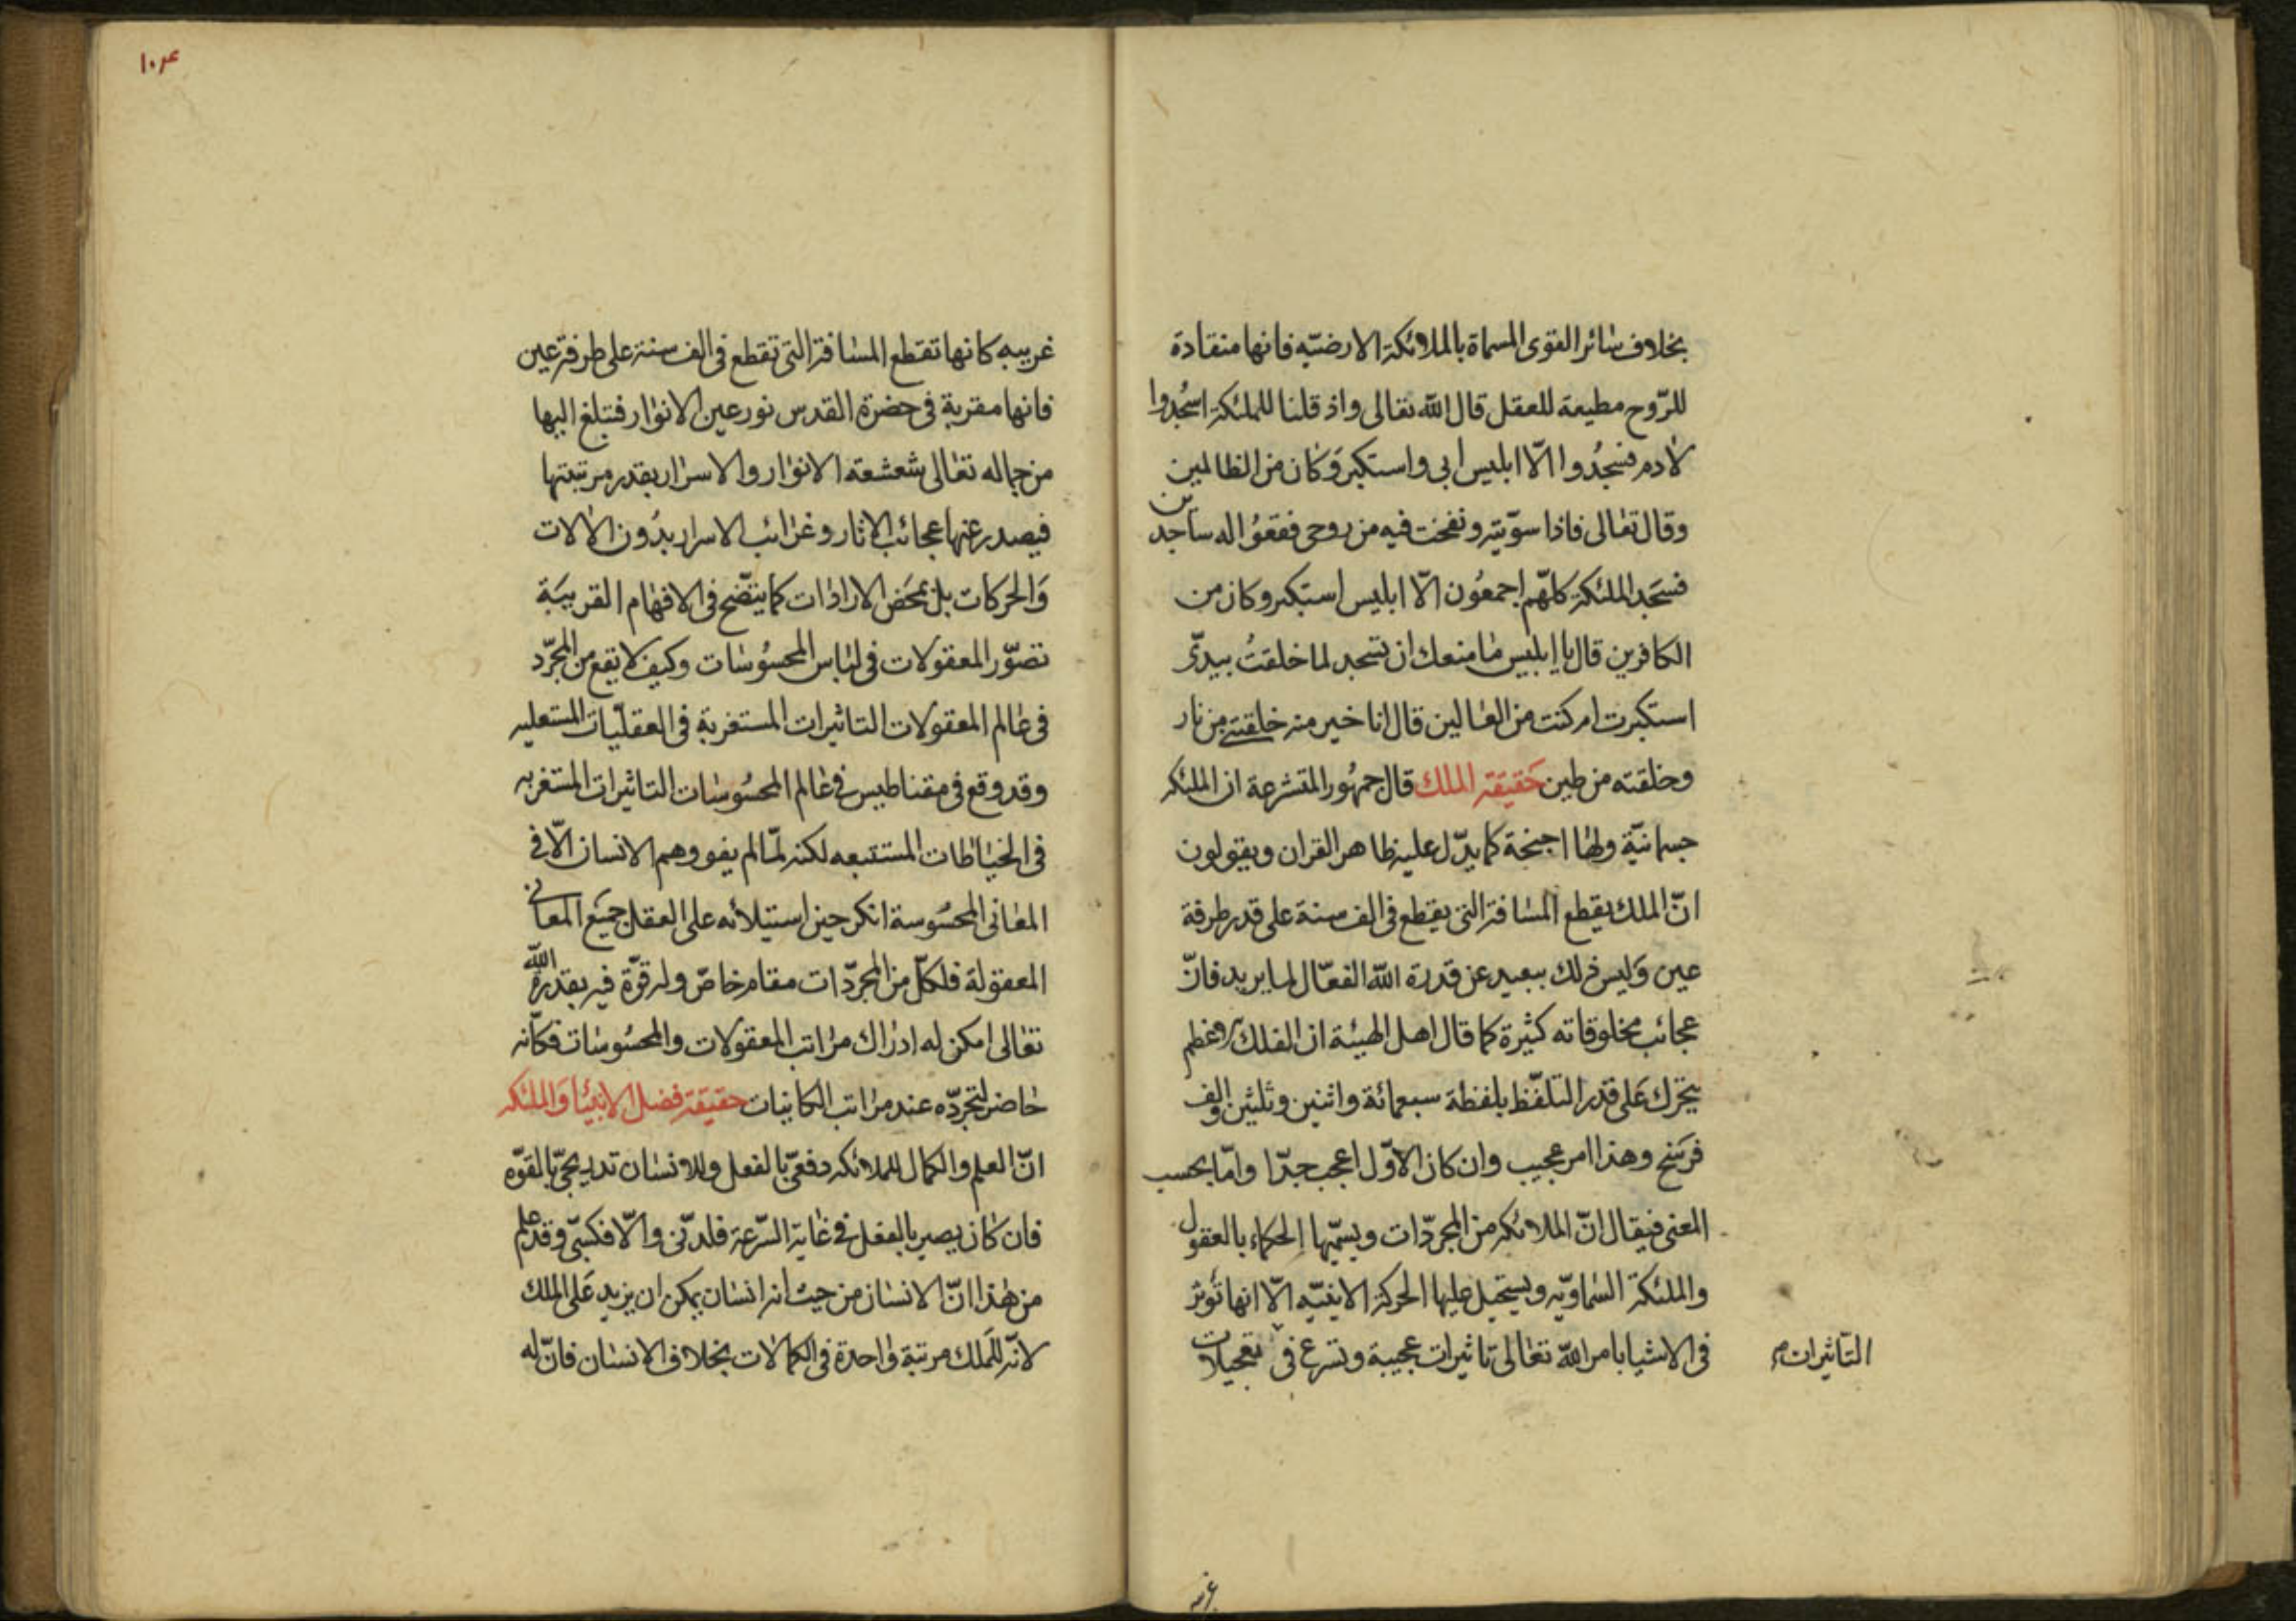 بخلاف سائر القوى المسماة بالملائكة الارضيّه فانها منقادة
للرّوح مطيعة للعقل قال الله تعالى واذ قلنا للملئكة اسجُدوا
لادم فسجدُوا الّا ابليس ابى واستكبر وَكان من الظالمين
وقال تعالى فاذا سوّيته ونفخت فيه من روحى فقعوُا له ساجدين
فسَجد الملئكة كلهّم اجمعُون الّا ابليس استكبر وكان من
الكافرين قال يا ابليس ما منعك ان تسجد لما خلقتُ بيدىّ
استكبرت ام كنت من العالين قال انا خير منه خلقتنى من نار
وخلقته من طين حَقيقة الملك قال جمهُور المتشرعة ان الملئكه
جسمانيّة ولها اجنحة كما يدّل عليه ظاهر القران ويقولون
انّ الملك يقطع المسافة التى يقطع فى الف سنة على قدر طرفة
عين وَليس ذلك ببعيد عن قدرة الله الفعّال لما يريد فانّ
عجائب مخلوقاته كثيرة كما قال اهل الهيئة ان الفلك الاعظم
يتحرك عَلى قدر التلفّظ بلفظة سبعمائة واثنين وثلثين الف
فرَسخ وهذا امر عجيب وان كان الاوّل اعجب جدّا وامّا بحسب
المعنى فيقال انّ الملائكه من المجرّدات ويسمّيها الحكماء بالعقول
والملئكة السّماويّه ويستحيل عليها الحركة الاينيّه الّا انها تؤثر
فى الاشيا بامر الله تعالى تاثيرات عجيبة وتسرع فى تعجيلات
التّاثيرات م
غريبه
١٠٤
غريبه كانها تقطع المسافة التى تقطع فى الف سنة على طرفة عين
فانها مقربة فى حضرة القدس نور عين الانوار فتبلغ اليها
من جماله تعالى شعشعة الانوار والاسرار بقدر مرتبتها
فيصدر عنها عجائب الاثار وغرائب الاسرار بدُون الالات
وَالحركات بل بمحَض الارادات كما يتضّح فى الافهام القريبَة
تصوّر المعقولات فى لباس المحسُوسات وكيف لا يقع من المجرّد
فى عالم المعقولات التاثيرات المستغربة فى العقليّات المستعليه
وقد وقع فى مقناطيس فى عالم المحسُوسات التاثيرات المستغربه
فى الخياطات المستتبعه لكنه لمّا لم يفو وهم الانسان الّا فى
المعانى المحسُوسة انكر حين استيلائه على العقل جميَع المعانى
المعقولة فلكلّ من المجرّدات مقام خاصّ وله قوّة فيه بقدرة الله
تعالى امكن له ادراك مراتب المعقولات والمحسُوسات فكانّه
حاضر لتجرّده عند مراتب الكاينات حقيقة فضل الانبيَا وَالملئكه
انّ العلم والكمال للملائكه دفعىّ بالفعل وللانسان تدريجىّ بالقوّه
فان كان يصير بالفعل فى غاية السّرعة فلدنّى والّا فكسبىّ وقد علم
من هذا انّ الانسان من حيث انه انسان يمكن ان يزيد عَلى الملك
لانّه للَملك مرتبة واحدة فى الكمالات بخلاف الانسان فانّ له